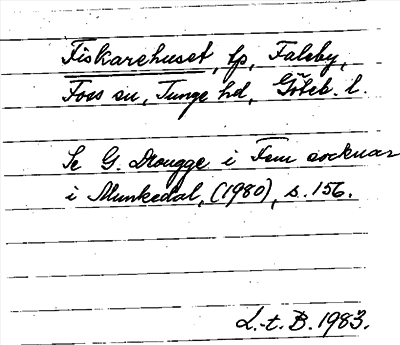 Fiskarehuset, lp, Faleby,
Foss sn, Tunge hd, Göteb. l.
Se G. Drougge i Fem socknar
i Munkedal, (1980), s. 156.
L.-t. B. 1983.